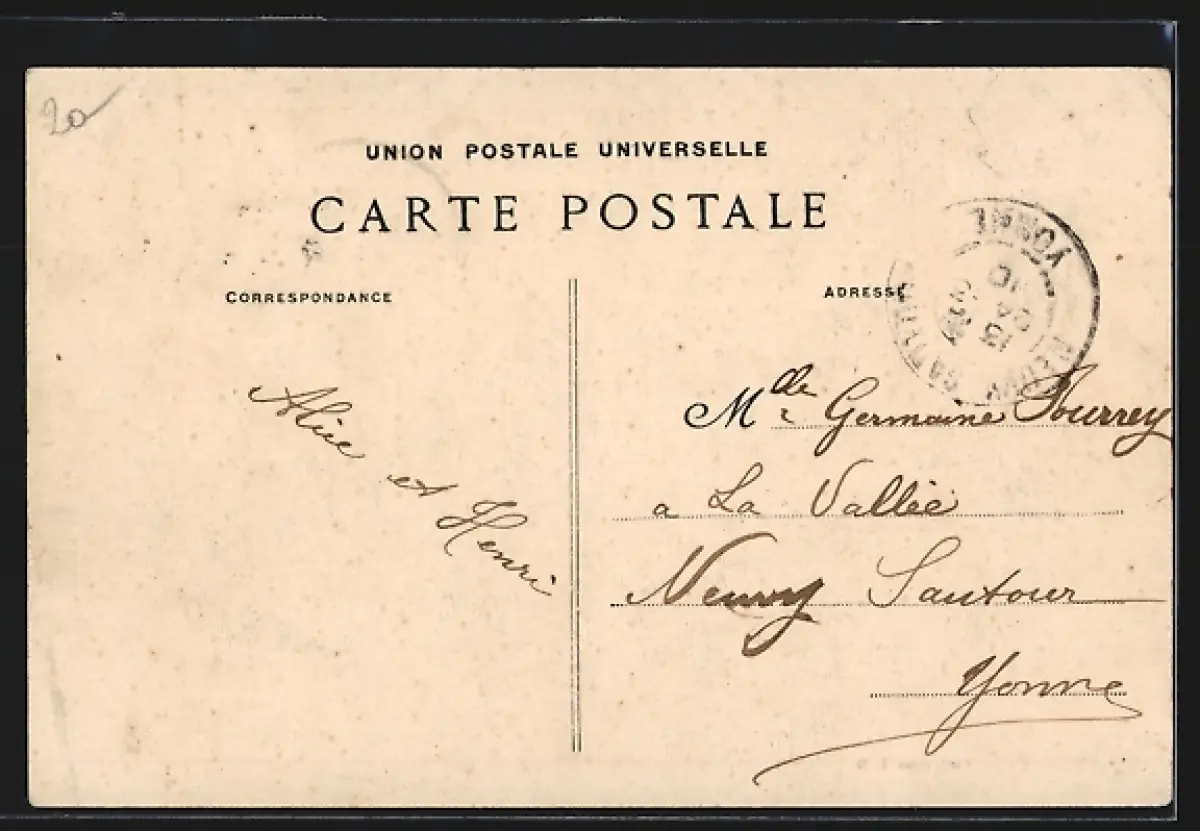 20
UNION POSTALE UNIVERSELLE
CARTE POSTALE
CORRESPONDANCE
ADRESSE
YONNE
13
Alice et Henri
Mlle Germaine Fourrey
a La Vallée
Neuvy Sautour
Yonne